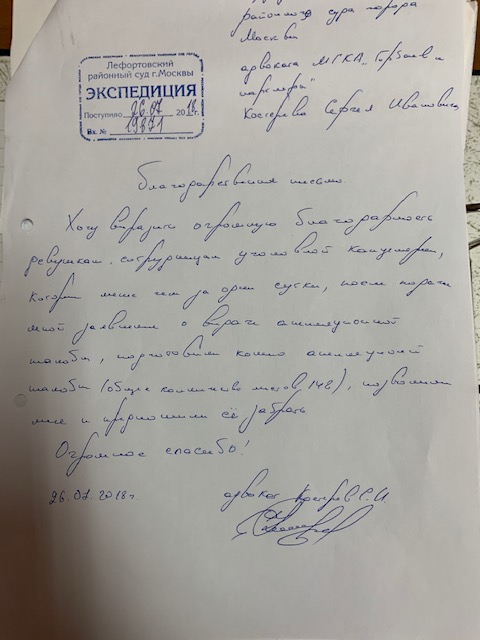 районного суда города
Москвы
адвоката МГКА „Горбачев и
партнеры"
Сергея Ивановича
Лефортовский
районный суд г.Москвы
ЭКСПЕДИЦИЯ
Поступило 26.07 2018г.
Вх. № 19871
Благодарственное письмо.
Хочу выразить огромную благодарность
девушкам сотрудницам уголовной канцелярии,
которые менее чем за одни сутки, после подачи
мной заявления о выдаче апелляционной
жалобы, подготовили копию апелляционной
жалобы (общее количество листов 148), позвонили
мне и предложили её забрать
Огромное спасибо!
26.07.2018г. адвокат С.И.